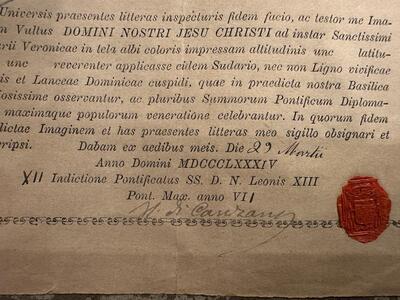 Universis praesentes litteras inspecturis fidem facio, ac testor me Ima-
m Vultus DOMINI NOSTRI JESU CHRISTI ad instar Sanctissimi
arii Veronicae in tela albi coloris impressam altitudinis unc latitu-
unc reverenter applicasse eidem Sudario, nec non Ligno vivificae
is et Lanceae Dominicae cuspidi, quae in praedicta nostra Basilica
iosissime osservantur, ac pluribus Summorum Pontificum Diploma-
maximaque populorum veneratione celebrantur. In quorum fidem
dictae Imaginem et has praesentes litteras meo sigillo obsignari et
cripsi. Dabam ex aedibus meis. Die 29 Martii
Anno Domini MDCCCLXXXIV
XII Indictione Pontificatus SS. D. N. Leonis XIII
Pont. Max. anno VII